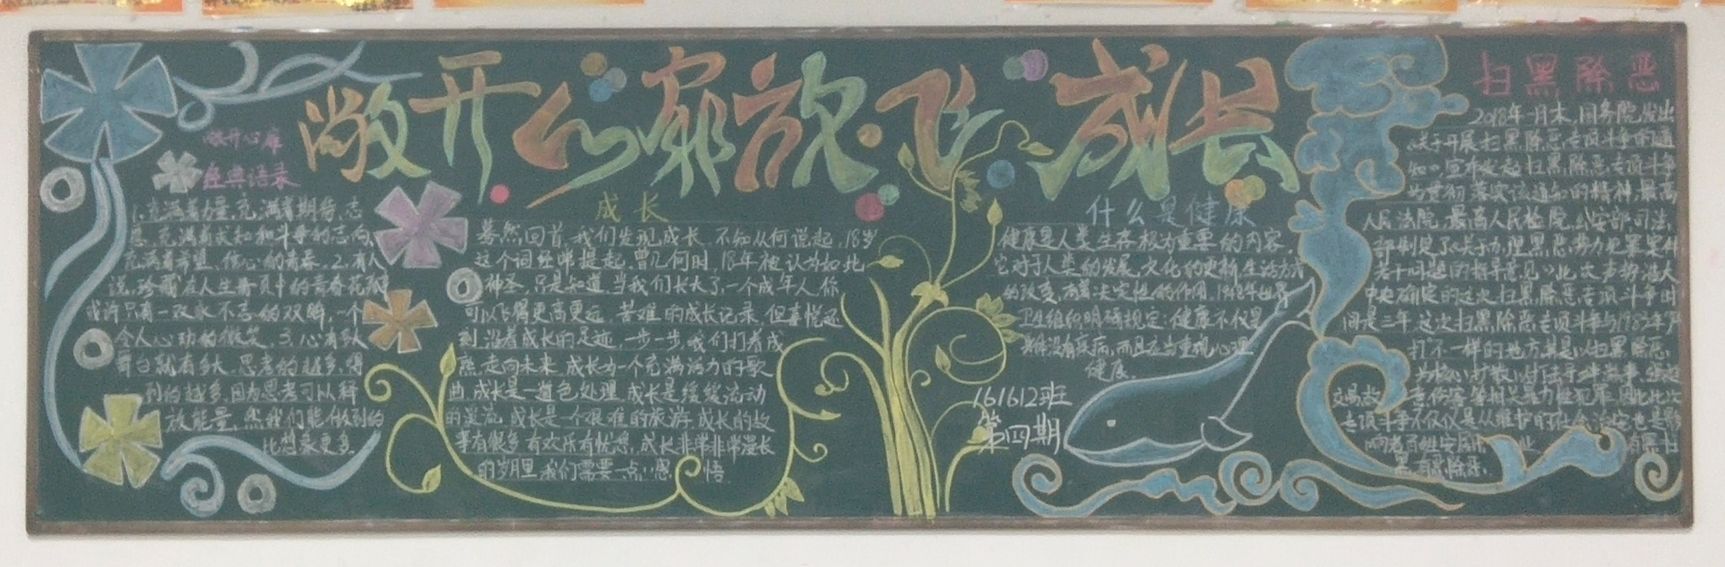 敞开心扉放飞成长
敞开心扉
经典语录
1.充满着力量,充满着期待,志
愿,充满着求知和斗争的志向,
充满着希望、信心的青春。2.有人
说,珍藏在人生每页中的青春花瓣
或许只有一双永不言的双眸,一个
令人心动的微笑。3.心有多大
舞台就有多大,思考的越多,得
到的越多,因为思考可以释
放能量,然我们能做到的
比想象更多。
成长
蓦然回首,我们发现成长,不知从何说起,18岁
这个词经常提起,曾几何时,18年被认为如此
神圣,只是知道,当我们长大了,一个成年人,你
可以飞得更高更远,苦难的成长记录,但喜悦还
刻沿着成长的足迹,一步一步,我们打着成
熟,走向未来,成长为一个充满活力的歌
曲,成长是一道色处理,成长是缓缓流动
的是流,成长是一个很难的旅游,成长的故
事有很多,有欢乐有忧愁,成长非常非常漫长
的岁月里,我们需要一点"思 悟
什么是健康
健康是人类生存极为重要的内容,
它对于人类的发展,文化的更新,生活方式
的改变,有着决定性的作用。1948年世界
卫生组织明确规定:健康不仅是
身体没有疾病,而且应当重视心理
健康。
161612班
第四期
扫黑除恶
2018年一月末,国务院发出
《关于开展扫黑除恶专项斗争的通
知》,宣布发起扫黑除恶专项斗争
为贯彻落实该通知的精神,最高
人民法院,最高人民检院,公安部,司法
部制定了《关于办理黑恶势力犯罪案件
若干问题的指导意见》此次
中央确定的这次扫黑除恶专项斗争时
间是三年,这次扫黑除恶专项斗争与1982年严
打不一样的地方其是以扫黑除恶
专项斗争不仅仅是从维护的社会治安也是影
响老百姓安居 业 有黑扫
黑有恶除恶。